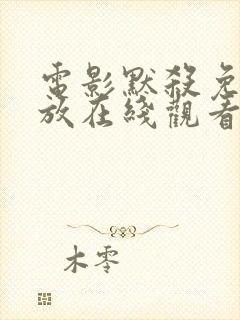 電影默殺免
放在綫觀看
木零